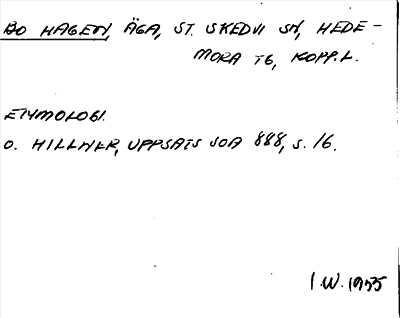 BO HAGEN, ÄGA, ST. SKEDVI SN, HEDE-
MORA TG, KOPP.L.
ETYMOLOGI.
O. HILLNER, UPPSATS SOA 888, S. 16.
I.W. 1955